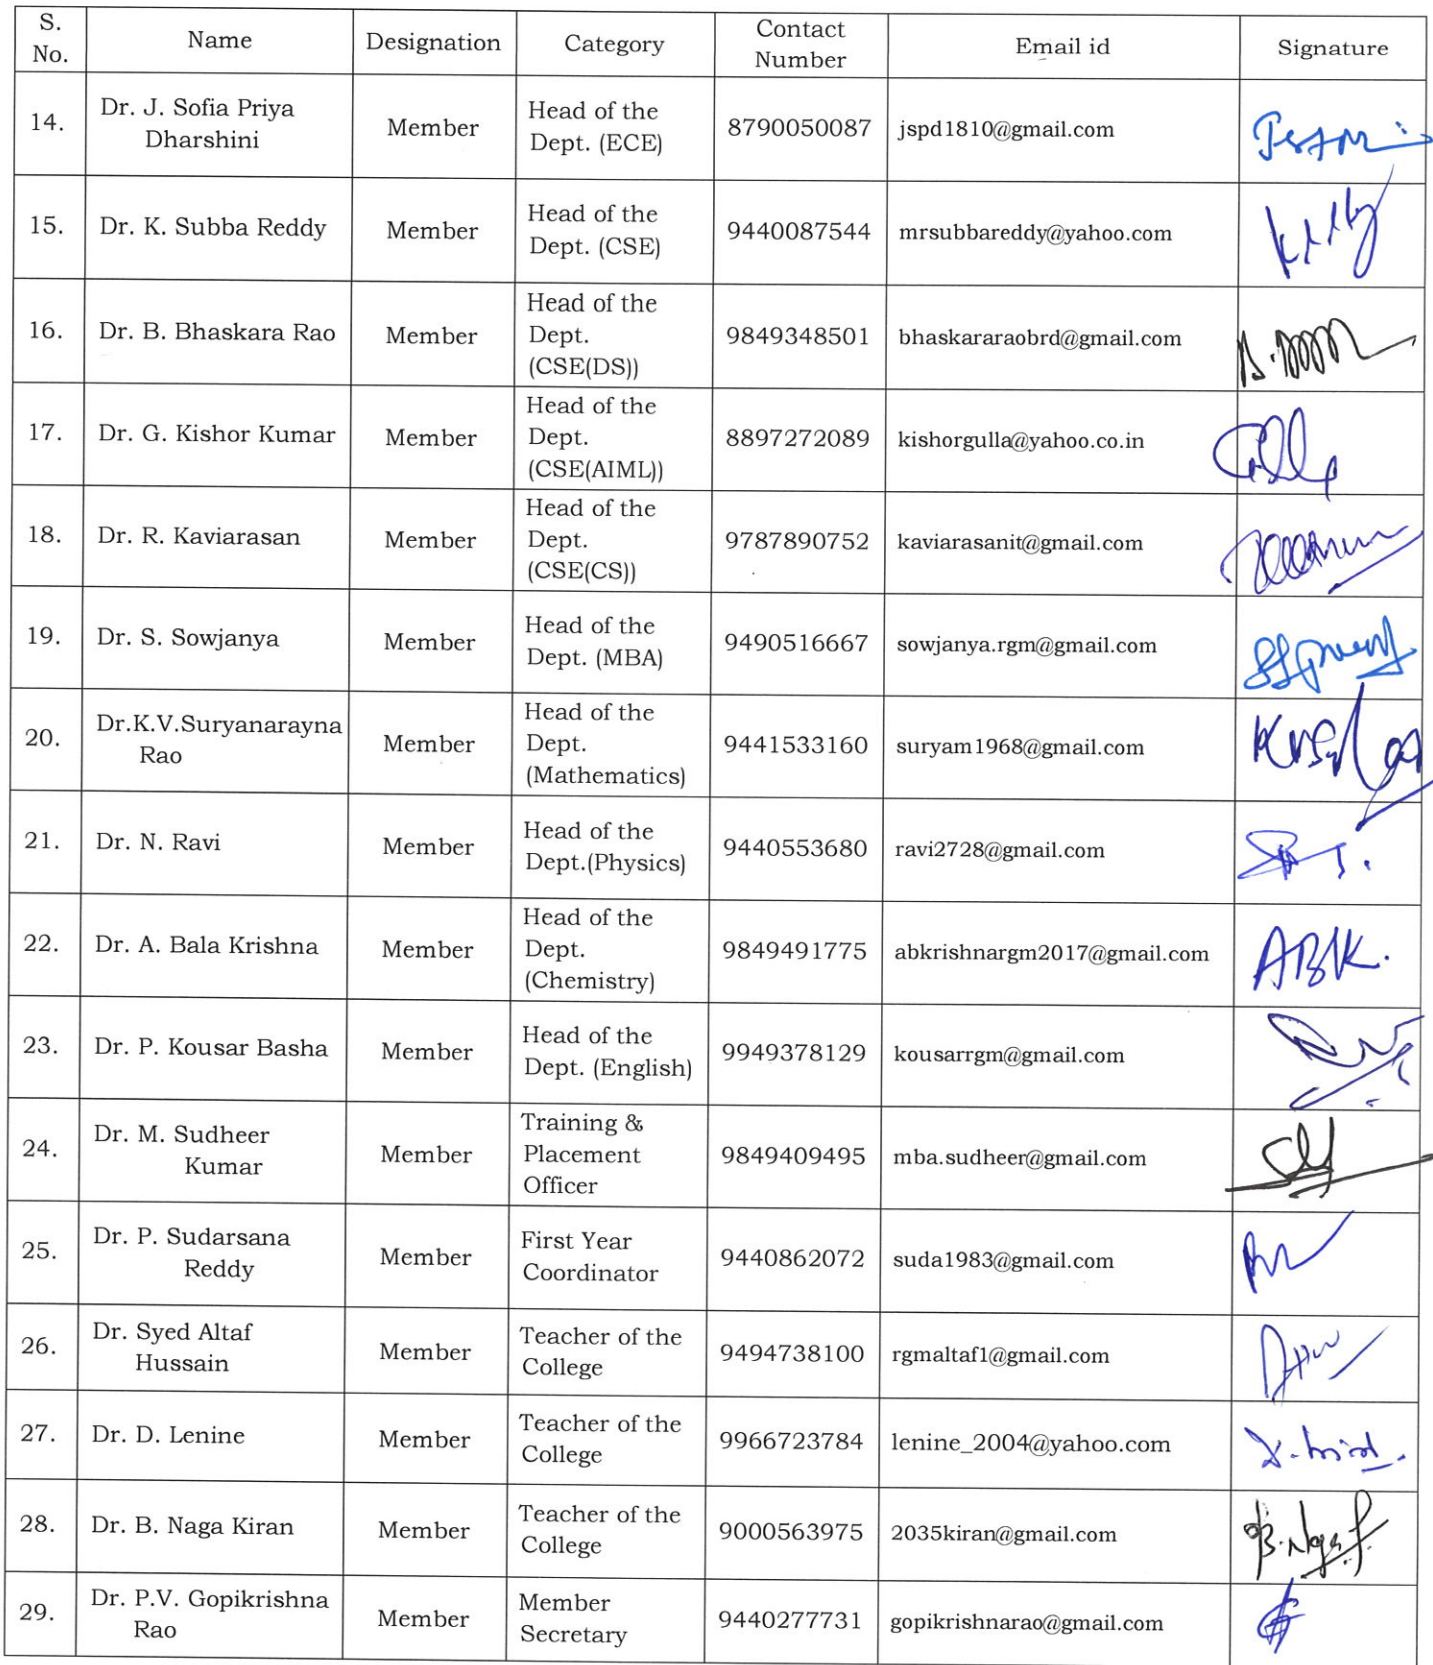 S. No. Name Designation Category Contact Number Email id Signature
14. Dr. J. Sofia Priya Dharshini Member Head of the Dept. (ECE) 8790050087 jspd1810@gmail.com
15. Dr. K. Subba Reddy Member Head of the Dept. (CSE) 9440087544 mrsubbareddy@yahoo.com
16. Dr. B. Bhaskara Rao Member Head of the Dept. (CSE(DS)) 9849348501 bhaskararaobrd@gmail.com
17. Dr. G. Kishor Kumar Member Head of the Dept. (CSE(AIML)) 8897272089 kishorgulla@yahoo.co.in
18. Dr. R. Kaviarasan Member Head of the Dept. (CSE(CS)) 9787890752 kaviarasanit@gmail.com
19. Dr. S. Sowjanya Member Head of the Dept. (MBA) 9490516667 sowjanya.rgm@gmail.com
20. Dr.K.V.Suryanarayna Rao Member Head of the Dept. (Mathematics) 9441533160 suryam1968@gmail.com
21. Dr. N. Ravi Member Head of the Dept.(Physics) 9440553680 ravi2728@gmail.com
22. Dr. A. Bala Krishna Member Head of the Dept. (Chemistry) 9849491775 abkrishnargm2017@gmail.com ABK.
23. Dr. P. Kousar Basha Member Head of the Dept. (English) 9949378129 kousarrgm@gmail.com
24. Dr. M. Sudheer Kumar Member Training & Placement Officer 9849409495 mba.sudheer@gmail.com
25. Dr. P. Sudarsana Reddy Member First Year Coordinator 9440862072 suda1983@gmail.com
26. Dr. Syed Altaf Hussain Member Teacher of the College 9494738100 rgmaltaf1@gmail.com
27. Dr. D. Lenine Member Teacher of the College 9966723784 lenine_2004@yahoo.com
28. Dr. B. Naga Kiran Member Teacher of the College 9000563975 2035kiran@gmail.com
29. Dr. P.V. Gopikrishna Rao Member Member Secretary 9440277731 gopikrishnarao@gmail.com